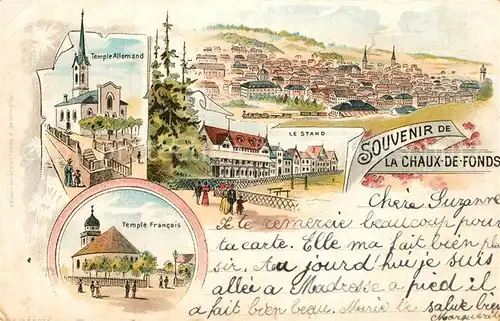 Temple Allemand
LE STAND
SOUVENIR DE
LA CHAUX-DE-FONDS
Temple Français
Chère Suzanne
Je te remercie beaucoup pour
ta carte. Elle ma fait bien plai
sir. Au jourd'hui je suis
allée a Madresse a pied il
a fait bien beau. Marie te salue bien
Marguerite